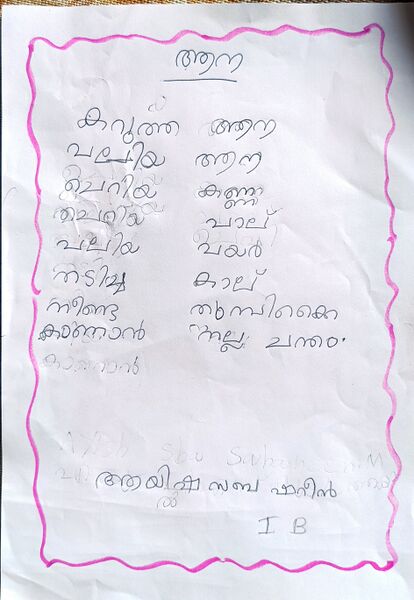 ആന
കറുത്ത ആന
വലിയ ആന
ചെറിയ കണ്ണ്
ചെറിയ വാല്
വലിയ വയർ
തടിച്ച കാല്
നീണ്ട തുമ്പിക്കൈ
കാണാൻ നല്ല ചന്തം.
കാണാൻ
ആയിഷ സബ ഷറിൻ
I B